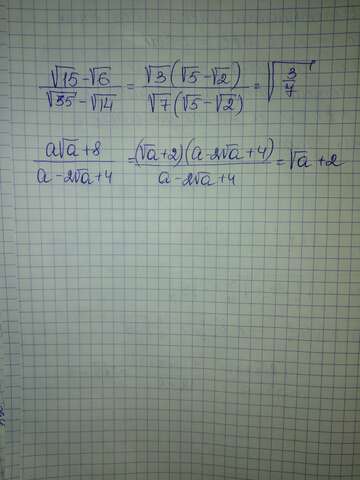 (√15-√6)/(√35-√14) = (√3(√5-√2))/(√7(√5-√2)) = √(3/7)
(a√a+8)/(a-2√a+4) = ((√a+2)(a-2√a+4))/(a-2√a+4) = √a+2